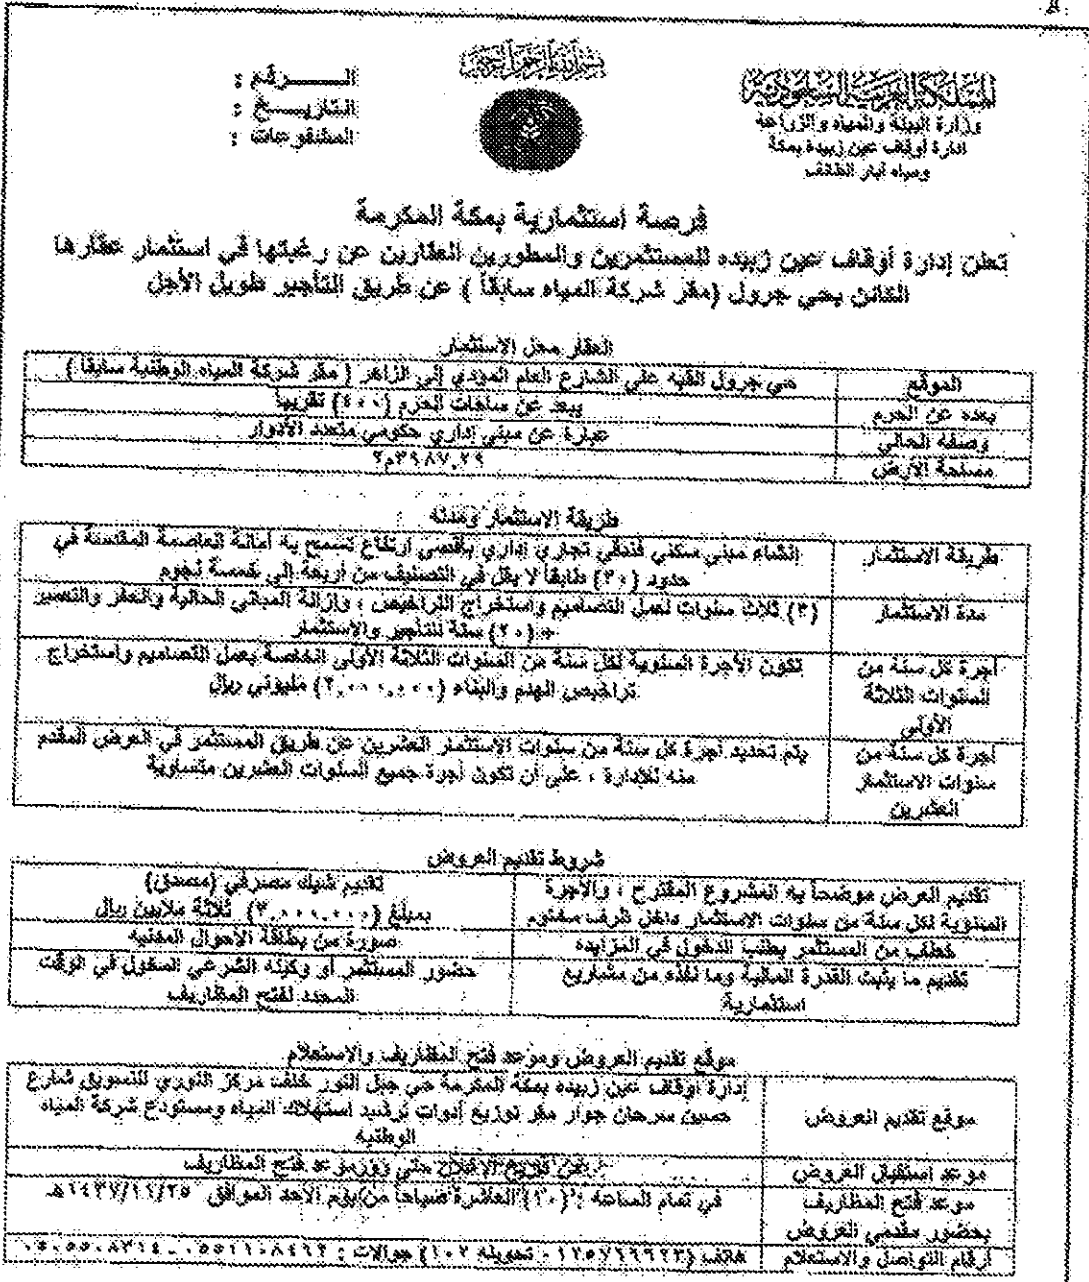 بسم الله الرحمن الرحيم
المملكة العربية السعودية
وزارة البيئة والمياه والزراعة
ادارة أوقاف عين زبيدة بمكة
ومياه آبار الطائف
الـــــرقم :
التاريـــخ :
المشفوعات :
فرصة استثمارية بمكة المكرمة
تعلن إدارة أوقاف عين زبيده للمستثمرين والمطورين العقارين عن رغبتها في استثمار عقارها
الكائن بحي جرول (مقر شركة المياه سابقاً ) عن طريق التأجير طويل الأجل
العقار محل الاستثمار
الموقع
حي جرول القبه على الشارع العام المؤدي إلى الزاهر ( مقر شركة المياه الوطنية سابقا )
بعده عن الحرم
يبعد عن ساحات الحرم (٤٠٠) تقريباً
وصفه الحالي
عبارة عن مبنى إداري حكومي متعدد الأدوار
مساحة الأرض
٣٩٨٧,٢٩م٢
طريقة الاستثمار ومدته
طريقة الاستثمار
إنشاء مبنى سكني فندقي تجاري إداري بأقصى ارتفاع تسمح به أمانة العاصمة المقدسة في
حدود (٣٠) طابقاً لا يقل في التصنيف من أربعة إلى خمسة نجوم
مدة الاستثمار
(٣) ثلاث سنوات لعمل التصاميم واستخراج التراخيص ، وإزالة المباني الحالية والحفر والتعمير
+ (٢٠) سنة للتأجير والاستثمار
أجرة كل سنة من
السنوات الثلاثة
الأولى
تكون الأجرة السنوية لكل سنة من السنوات الثلاثة الأولى الخاصة بعمل التصاميم واستخراج
تراخيص الهدم والبناء (٢,٠٠٠,٠٠٠) مليوني ريال
أجرة كل سنة من
سنوات الاستثمار
العشرين
يتم تحديد أجرة كل سنة من سنوات الاستثمار العشرين عن طريق المستثمر في العرض المقدم
منه للإدارة ، على أن تكون أجرة جميع السنوات العشرين متساوية
شروط تقديم العروض
تقديم العرض موضحاً به المشروع المقترح ، والأجرة
السنوية لكل سنة من سنوات الاستثمار داخل ظرف مختوم
تقديم شيك مصرفي (مصدق)
بمبلغ (٣,٠٠٠,٠٠٠) ثلاثة ملايين ريال
خطاب من المستثمر بطلب الدخول في المزايده
صورة من بطاقة الاحوال المدنيه
تقديم ما يثبت القدرة المالية وما نفذه من مشاريع
استثمارية
حضور المستثمر أو وكيله الشرعي المخول في الوقت
المحدد لفتح المظاريف
موقع تقديم العروض وموعد فتح المظاريف والاستعلام
موقع تقديم العروض
إدارة أوقاف عين زبيده بمكة المكرمة حي جبل النور خلف مركز النوري للتسويق شارع
حسين سرحان جوار مقر توزيع أدوات ترشيد استهلاك المياه ومستودع شركة المياه
الوطنيه
موعد استقبال العروض
من تاريخ الاعلان حتى موعد فتح المظاريف
موعد فتح المظاريف
بحضور مقدمي العروض
في تمام الساعه (١٠) العاشرة صباحاً من يوم الاحد الموافق ١٤٣٧/١١/٢٥هـ
أرقام التواصل والاستعلام
هاتف (٠١٢٥٧٦٦٦٢٣ - تحويله ١٠٢) جوالات : ٠٥٥١١٠٨٤٦٢ - ٠٥٠٥٥٠٨٣١٤